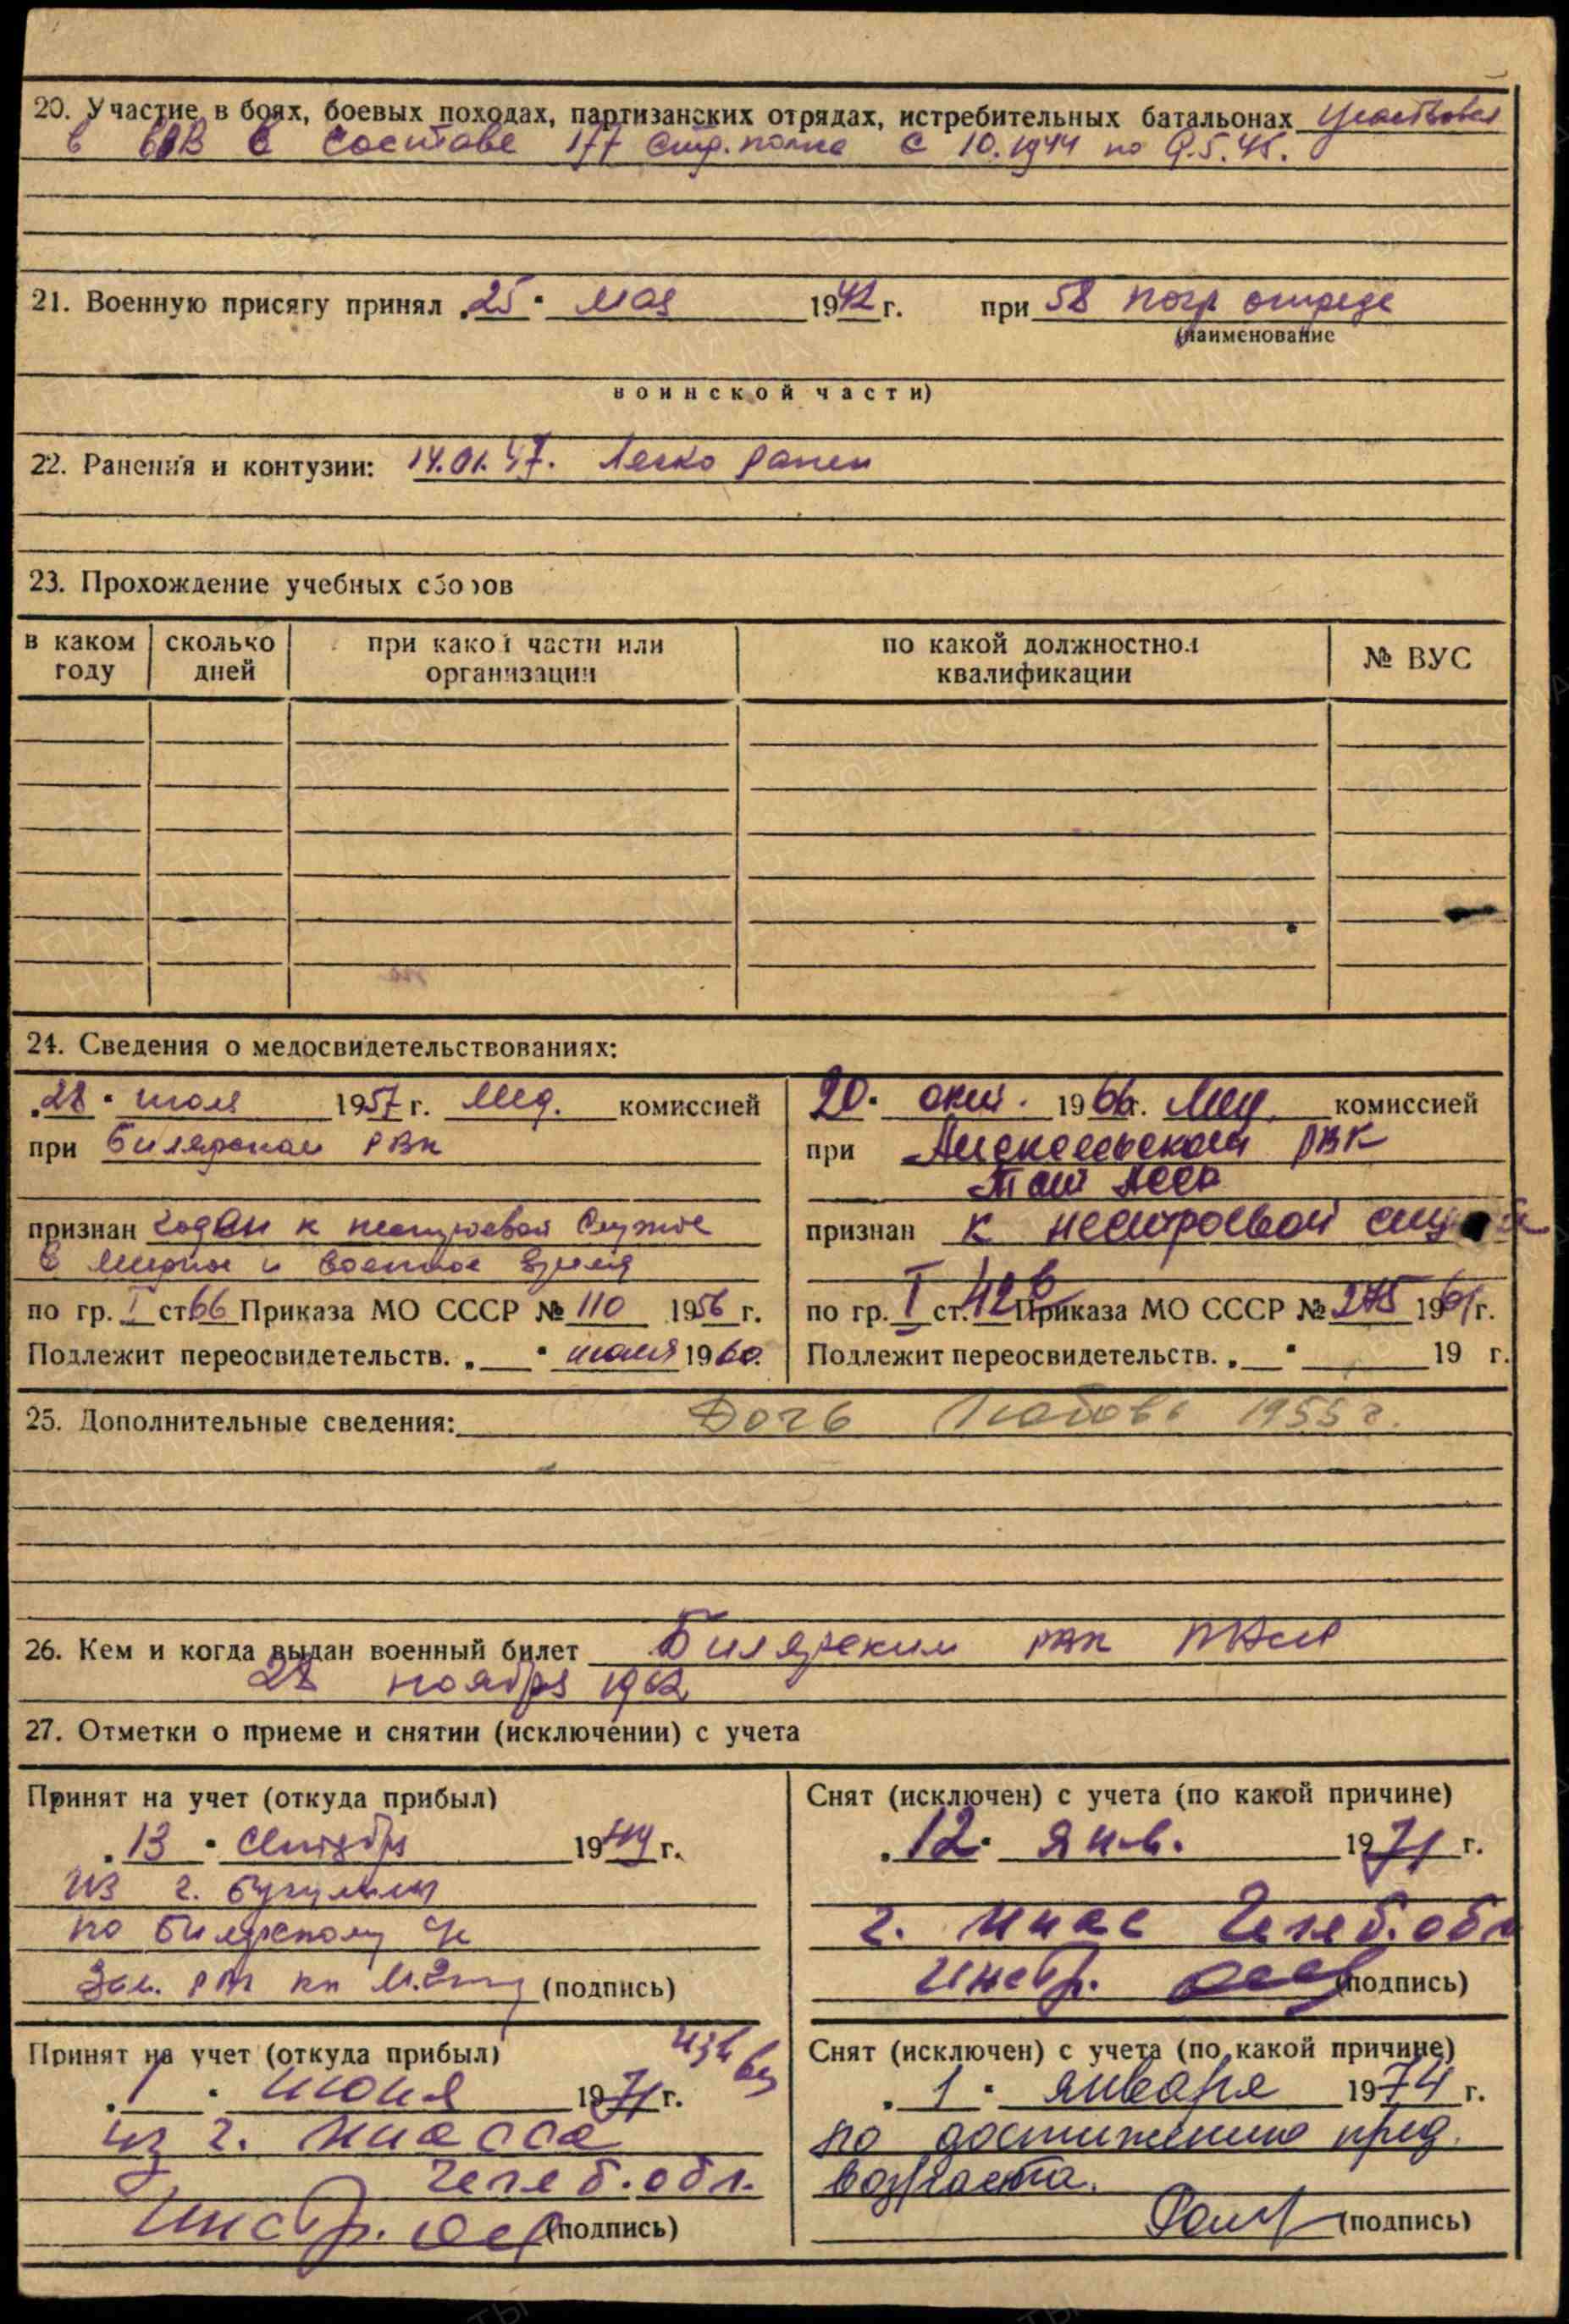 20. Участие в боях, боевых походах, партизанских отрядах, истребительных батальонах участвовал
в ВОВ в составе 177 стр. полка с 10.1944 по 9.5.45.
21. Военную присягу принял „25" мая 1942 г. при 58 погр отряде
(наименование
воинской части)
22. Ранения и контузии: 14.01.47. Легко ранен
23. Прохождение учебных сборов
в каком году
сколько дней
при какой части или организации
по какой должностной квалификации
№ ВУС
24. Сведения о медосвидетельствованиях:
„28" июля 1957 г. Мед. комиссией
при Билярском РВК
признан годен к нестроевой службе
в мирное и военное время
по гр. I ст. 66 Приказа МО СССР № 110 1956 г.
Подлежит переосвидетельств. „ " июля 1960
20. окт. 1966 г. Мед. комиссией
при РВК
Тат АССР
признан к нестроевой службе
по гр. I ст. 42в Приказа МО СССР № 275 1961 г.
Подлежит переосвидетельств. „ " 19 г.
25. Дополнительные сведения: Дочь Любовь 1955 г.
26. Кем и когда выдан военный билет Билярским РВК
28 ноября 1962
27. Отметки о приеме и снятии (исключении) с учета
Принят на учет (откуда прибыл)
„13" сентябр 1949 г.
из г. Бугульмы
по Билярскому
(подпись)
Снят (исключен) с учета (по какой причине)
„12" янв. 1971 г.
г. Миас Челяб. обл
Инстр. (подпись)
Принят на учет (откуда прибыл)
„1" июня 1971 г.
из г. Миасса
Челяб. обл.
Инстр. (подпись)
Снят (исключен) с учета (по какой причине)
„1" января 1974 г.
по достижению пред.
возраста.
(подпись)